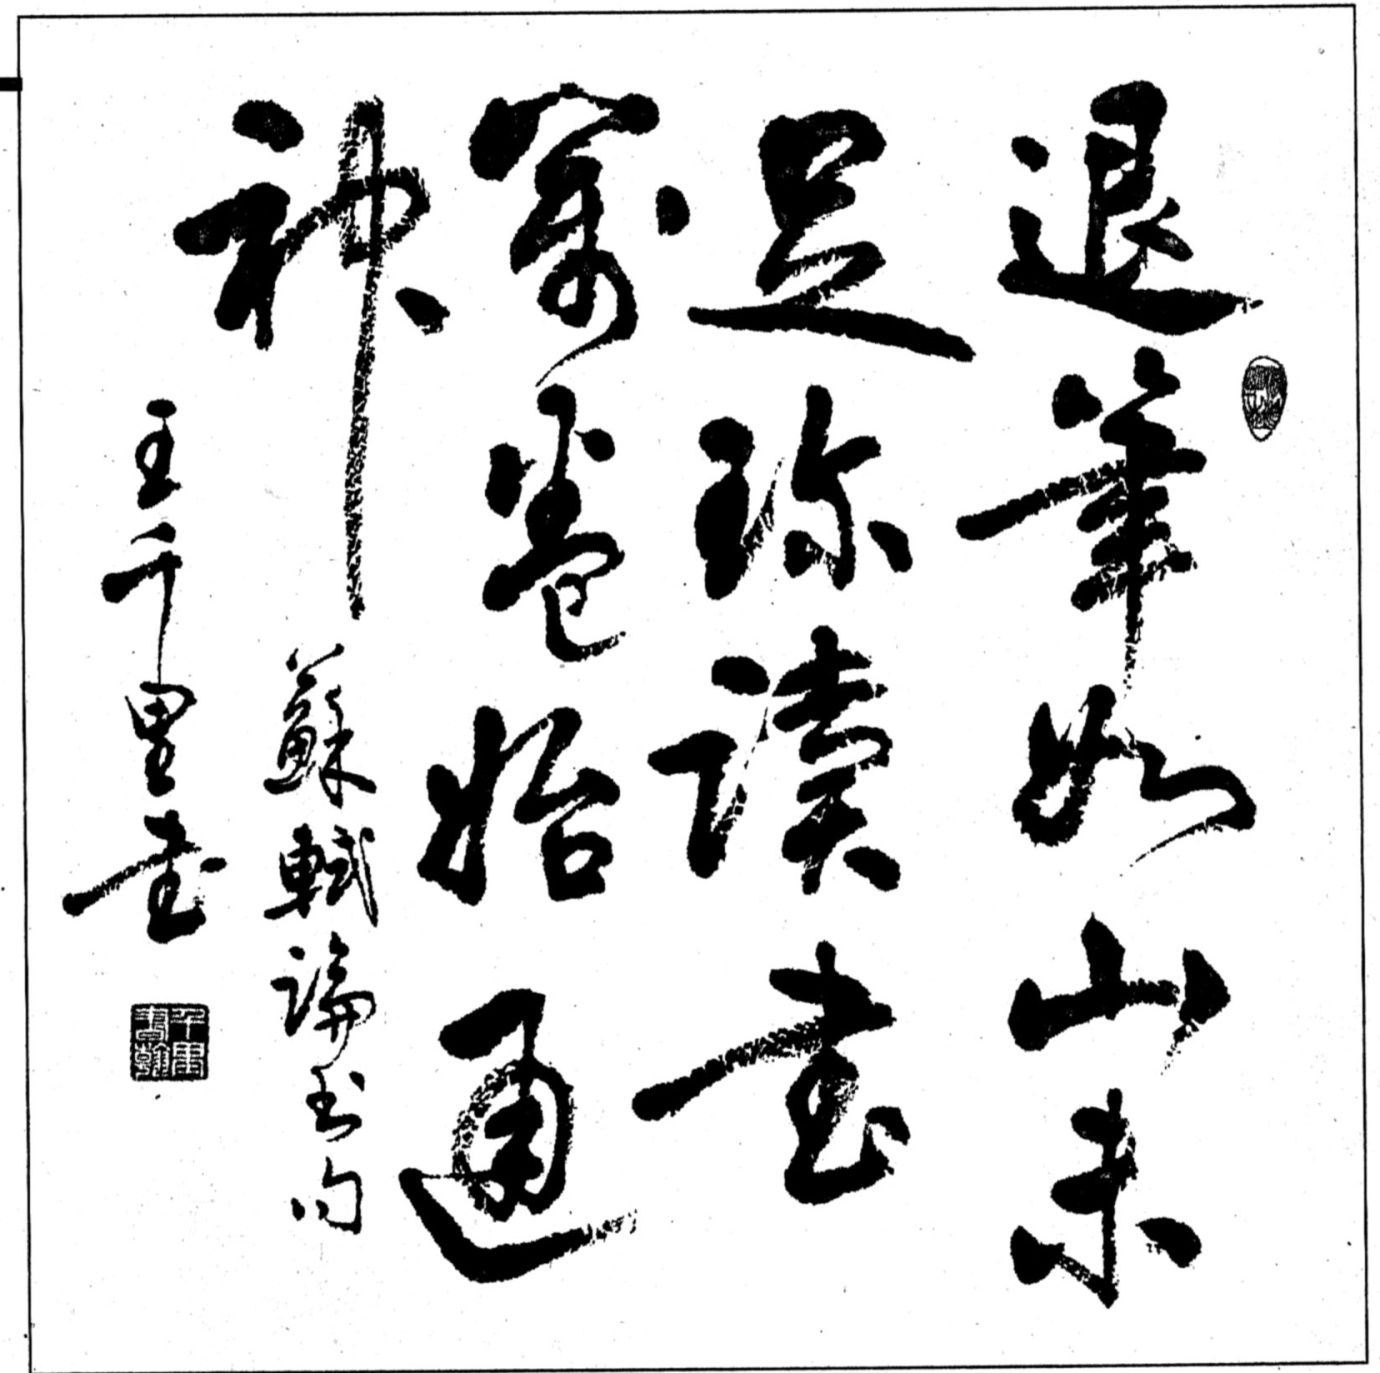 退筆如山未
足珍讀書
萬卷始通
神
蘇軾論書句
王千里書